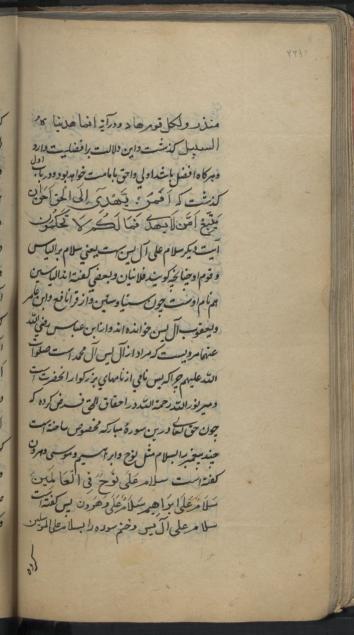 ۲۲۹
منذر ولکل قوم هاد ودر آیۀ انما هدینا کم
السبیل گذشت و این دلالت بر افضلیت دارد
و هرگاه افضل باشد اولی و احق بامامت خواهد بود و در باب اول
گذشت که افمن یهدی الی الحق احق ان
یتبع امن لا یهدی فما لکم کیف تحکمون
آیت دیگر سلام علی آل یس است یعنی سلام بر الیاس
و قوم او چنانچه گویند فلانیان و بعضی گفته اند الیاسین
هم نام اوست چون سینا و سینین و از قرا نافع و ابن عامر
و یعقوب آل یس خوانده اند و از ابن عباس رضی الله
عنهما مرویست که مراد از آل یس آل محمد است صلوات
الله علیهم چرا که یس نامی از نامهای بزرگوار آنحضرت است
و میر نور الله رحمة الله در احقاق الحق فرض کرده که
چون حق تعالی درین سورۀ مبارکه مخصوص ساخته است
چند پیغمبر را بسلام مثل نوح و ابراهیم و موسی و هرون
گفته است سلام علی نوح فی العالمین
سلام علی ابراهیم سلام علی موسی و هرون پس گفته است
سلام علی آل یس و ختم سوره را بسلام علی المرسلین
کرده